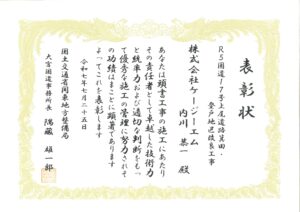 表彰状
R5国道17号上尾道路箕田・
登戸地区改良工事
株式会社ケージーエム
内川 恭一 殿
あなたは頭書工事の施工にあたり
その責任者として卓越した技術力
と統率力および適切な判断をもっ
て優秀な施工の管理に努力されそ
の功績はまことに顕著であります
よってこれを表彰します
令和七年七月二十五日
国土交通省関東地方整備局
大宮国道事務所長 隅蔵 雄一郎